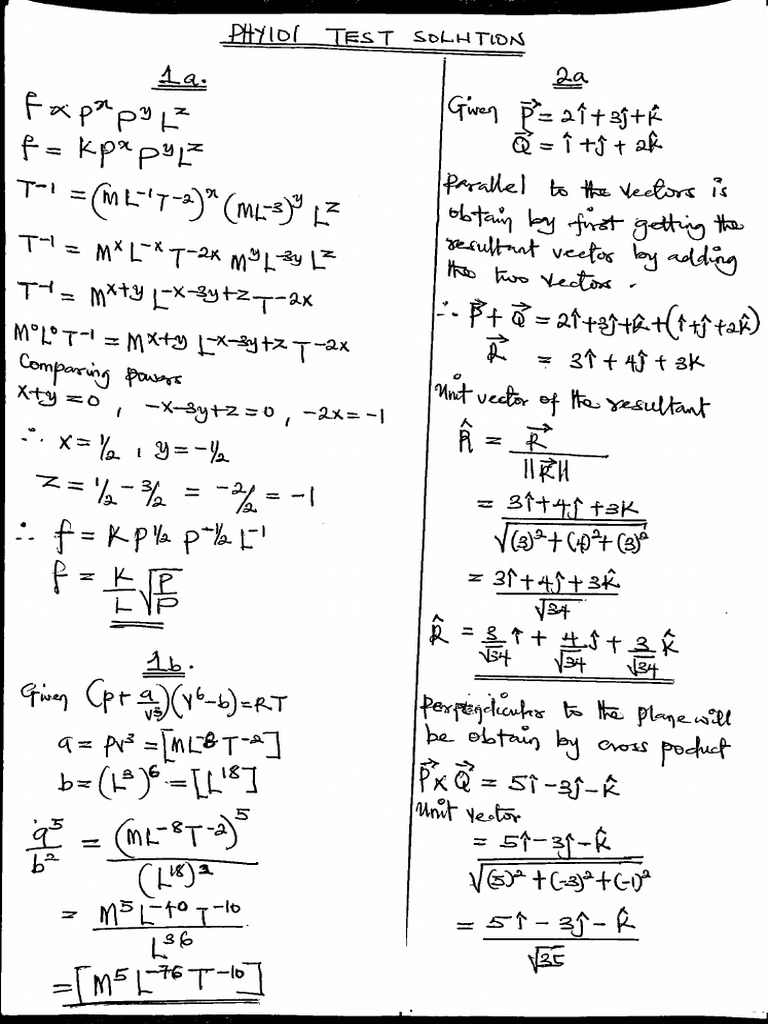 PHY101 TEST SOLUTION
1a.
f ∝ P^x P^y L^z
f = KP^x P^y L^z
T^-1 = (ML^-1T^-2)^x (ML^-3)^y L^z
T^-1 = M^x L^-x T^-2x M^y L^-3y L^z
T^-1 = M^x+y L^-x-3y+z T^-2x
M^0L^0T^-1 = M^x+y L^-x-3y+z T^-2x
Comparing powers
x+y=0, -x-3y+z=0, -2x=-1
∴ x=1/2, y=-1/2
z = 1/2 - 3/2 = -2/2 = -1
∴ f = KP^1/2 P^-1/2 L^-1
f = K/L √(P/P)
1b.
Given (P+ a/v^3)(v^6-b)=RT
a = PV^3 = [ML^8T^-2]
b = (L^3)^6 = [L^18]
a^5/b^2 = (ML^-8T^-2)^5/(L^18)^2
= M^5L^-40T^-10/L^36
= [M^5L^-76T^-10]
2a
Given P⃗ = 2î+3ĵ+k̂
Q⃗ = î+ĵ+2k̂
parallel to the vectors is
obtain by first getting the
resultant vector by adding
the two vectors.
∴ P⃗+Q⃗ = 2î+3ĵ+k̂+(î+ĵ+2k̂)
R⃗ = 3î+4ĵ+3k
Unit vector of the resultant
R̂ = R⃗/||R⃗||
= 3î+4ĵ+3k/√((3)^2+(4)^2+(3)^2)
= 3î+4ĵ+3k̂/√34
R̂ = 3/√34 î + 4/√34 ĵ + 3/√34 k̂
perpendicular to the plane will
be obtain by cross poduct
P⃗×Q⃗ = 5î-3ĵ-k̂
Unit vector
= 5î-3ĵ-k̂/√((5)^2+(-3)^2+(-1)^2)
= 5î-3ĵ-k̂/√35